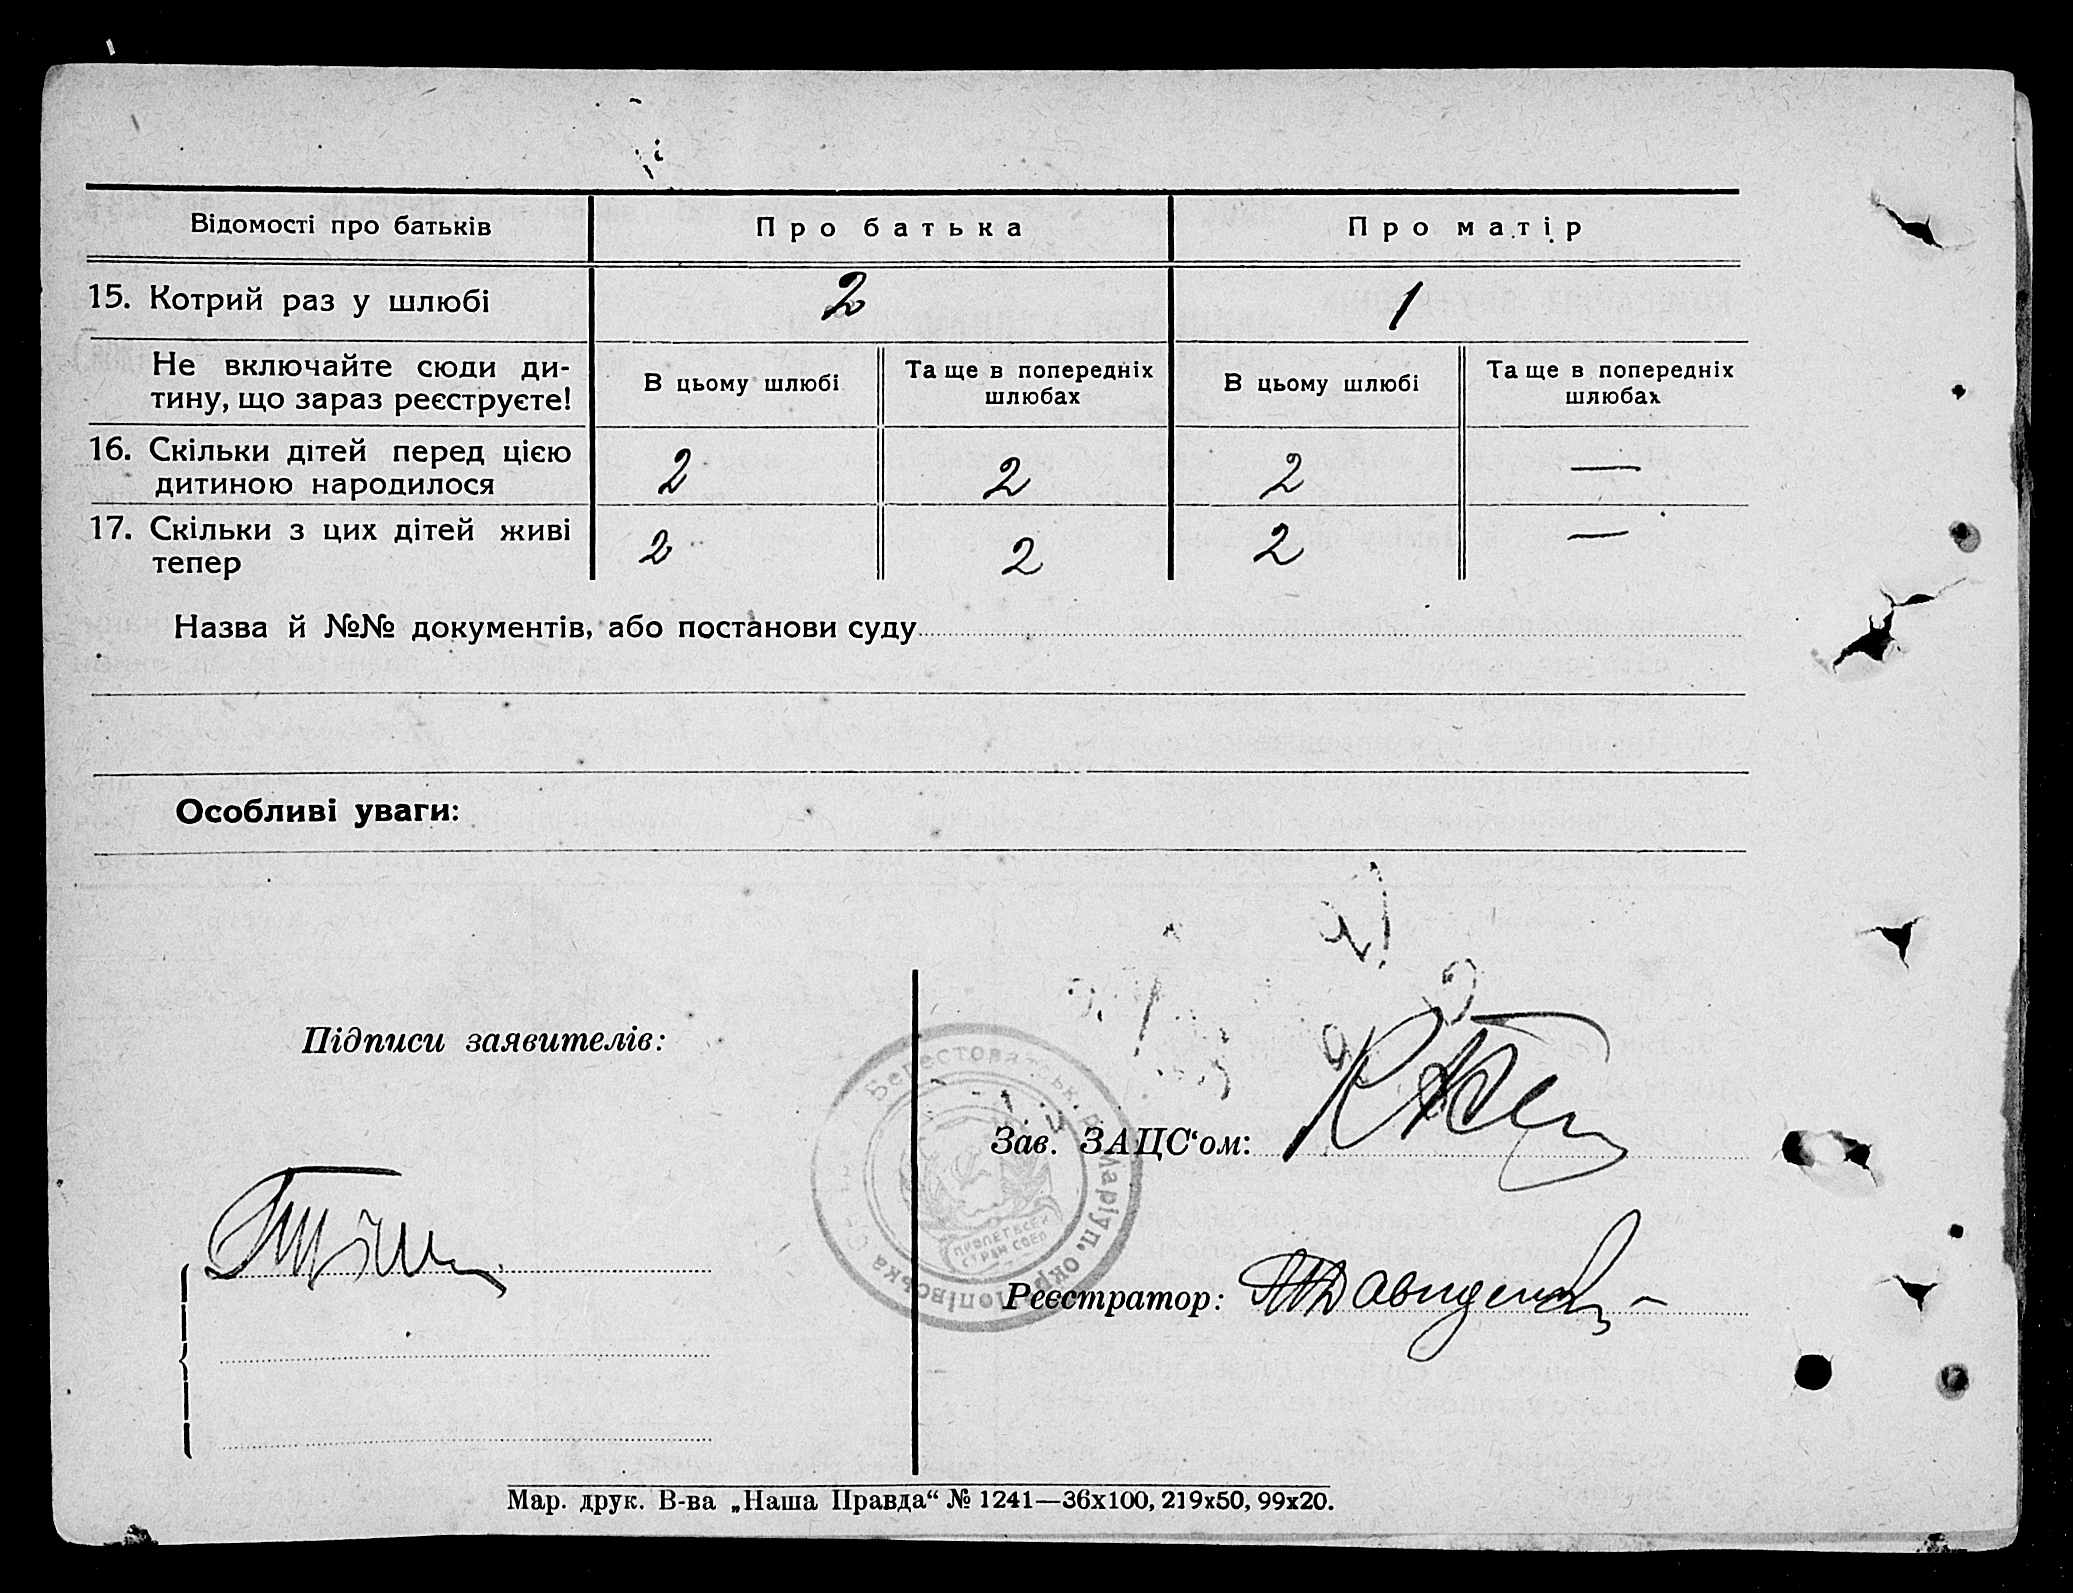 Відомості про батьків Про батька Про матір
15. Котрий раз у шлюбі 2 1
Не включайте сюди ди-
тину, що зараз реєструєте!
В цьому шлюбі
Та ще в попередніх
шлюбах
В цьому шлюбі
Та ще в попередніх
шлюбах
16. Скільки дітей перед цією
дитиною народилося
2 2 2 —
17. Скільки з цих дітей живі
тепер
2 2 2 —
Назва й №№ документів, або постанови суду
Особливі уваги:
Підписи заявителів:
Зав. ЗАЦС‘ом:
Реєстратор: Давиденко
Берестоватськ. р. Маріуп. окр.
ПРОЛЕТ. ВСЕХ
СТРАН СОЕД
Мар. друк. В-ва „Наша Правда“ № 1241—36х100, 219х50, 99х20.